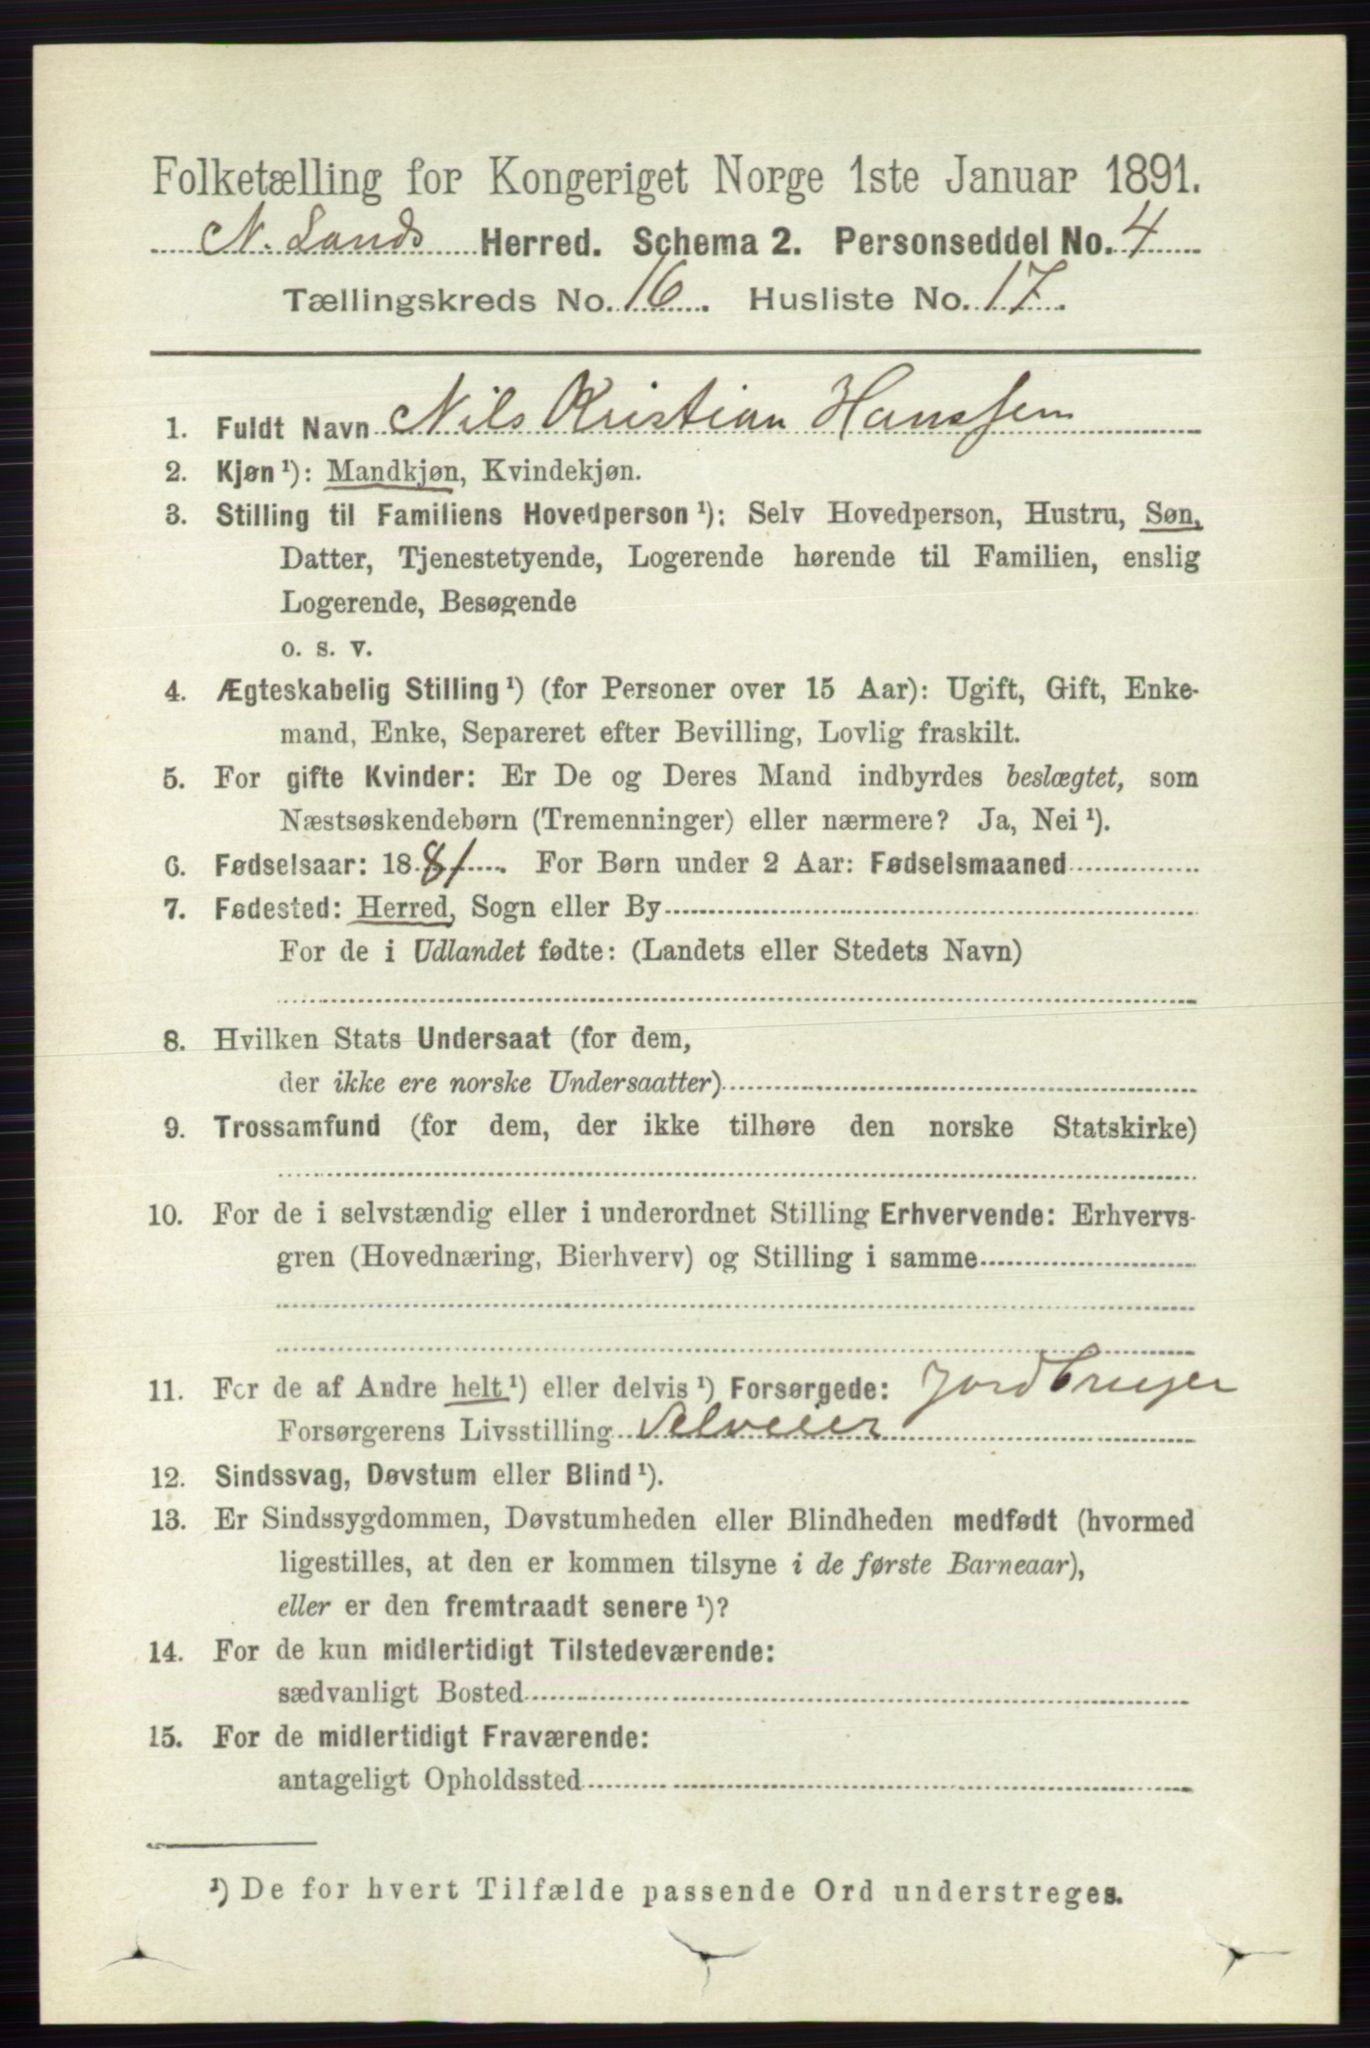 Folketælling for Kongeriget Norge 1ste Januar 1891.
N. Lands Herred. Schema 2. Personseddel No. 4
Tællingskreds No. 16. Husliste No. 17.
1. Fuldt Navn Nils Kristian Hanssen
2. Kjøn¹): Mandkjøn, Kvindekjøn.
3. Stilling til Familiens Hovedperson¹): Selv Hovedperson, Hustru, Søn,
Datter, Tjenestetyende, Logerende hørende til Familien, enslig
Logerende, Besøgende
o. s. v.
4. Ægteskabelig Stilling¹) (for Personer over 15 Aar): Ugift, Gift, Enke-
mand, Enke, Separeret efter Bevilling, Lovlig fraskilt.
5. For gifte Kvinder: Er De og Deres Mand indbyrdes beslægtet, som
Næstsøskendebørn (Tremenninger) eller nærmere? Ja, Nei¹).
6. Fødselsaar: 1881. For Børn under 2 Aar: Fødselsmaaned
7. Fødested: Herred, Sogn eller By
For de i Udlandet fødte: (Landets eller Stedets Navn)
8. Hvilken Stats Undersaat (for dem,
der ikke ere norske Undersaatter)
9. Trossamfund (for dem, der ikke tilhøre den norske Statskirke)
10. For de i selvstændig eller i underordnet Stilling Erhvervende: Erhvervs-
gren (Hovednæring, Bierhverv) og Stilling i samme
11. For de af Andre helt¹) eller delvis¹) Forsørgede: Jordbruger
Forsørgerens Livsstilling Selveier
12. Sindssvag, Døvstum eller Blind¹).
13. Er Sindssygdommen, Døvstumheden eller Blindheden medfødt (hvormed
ligestilles, at den er kommen tilsyne i de første Barneaar),
eller er den fremtraadt senere¹)?
14. For de kun midlertidigt Tilstedeværende:
sædvanligt Bosted
15. For de midlertidigt Fraværende:
antageligt Opholdssted
¹) De for hvert Tilfælde passende Ord understreges.